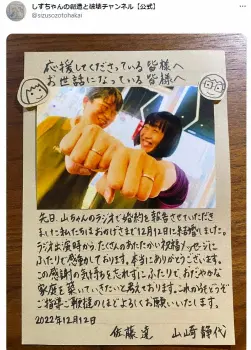 しずちゃんの創造と破壊チャンネル【公式】
@sizusozotohakai
応援してくださっている皆様へ
お世話になっている皆様へ
先日、山ちゃんのラジオで婚約を報告させていただき
ました私たちはおかげさまで12月12日に結婚しました。
ラジオ出演時からたくさんのあたたかい祝福メッセージに
ふたりで感動しております。本当にありがとうございます。
この感謝の気持ちを忘れずにふたりで、おだやかな
家庭を築いていきたいと思っております。これからもどうぞ
ご指導ご鞭撻のほどよろしくお願いいたします。
2022年12月12日
佐藤達 山崎静代